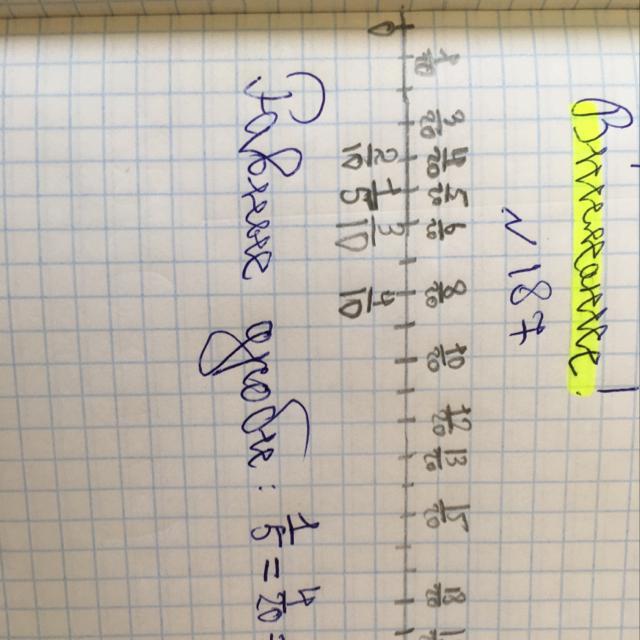 Внимание.
№ 187
1/20 3/20 4/20 5/20 6/20 8/20 10/20 12/20 13/20 15/20 18/20
0 2/10 1/5 3/10 4/10
Равные дроби: 1/5 = 4/20 =